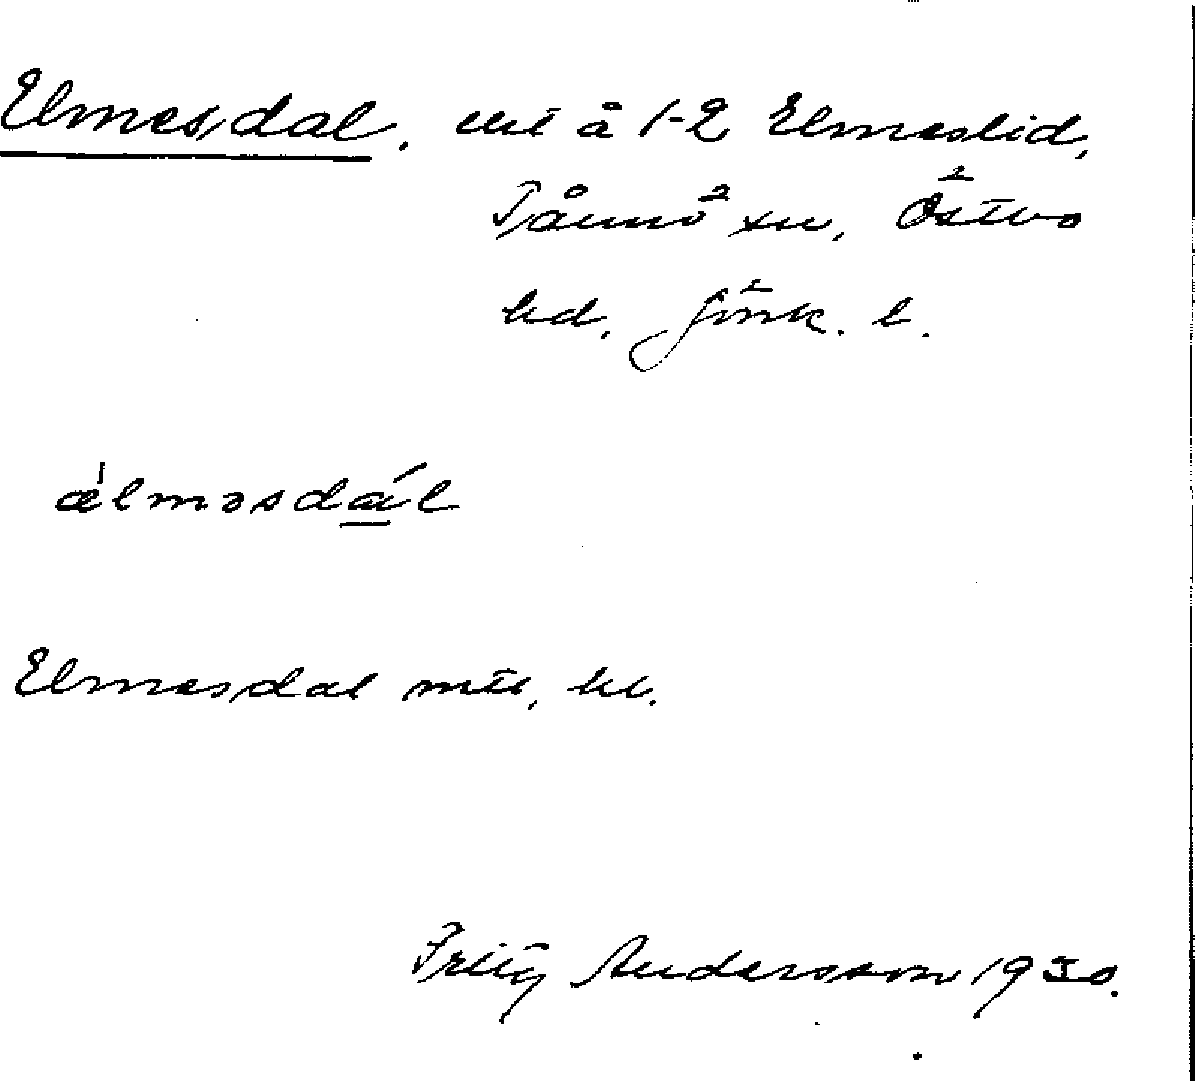 Elmesdal. utj å 1-2 Elmeslid,
Tånnö sn, Östbo
hd, Jönk. l.
ælməsdál
Elmesdal mtl, kl.
Fritz Andersson 1930.